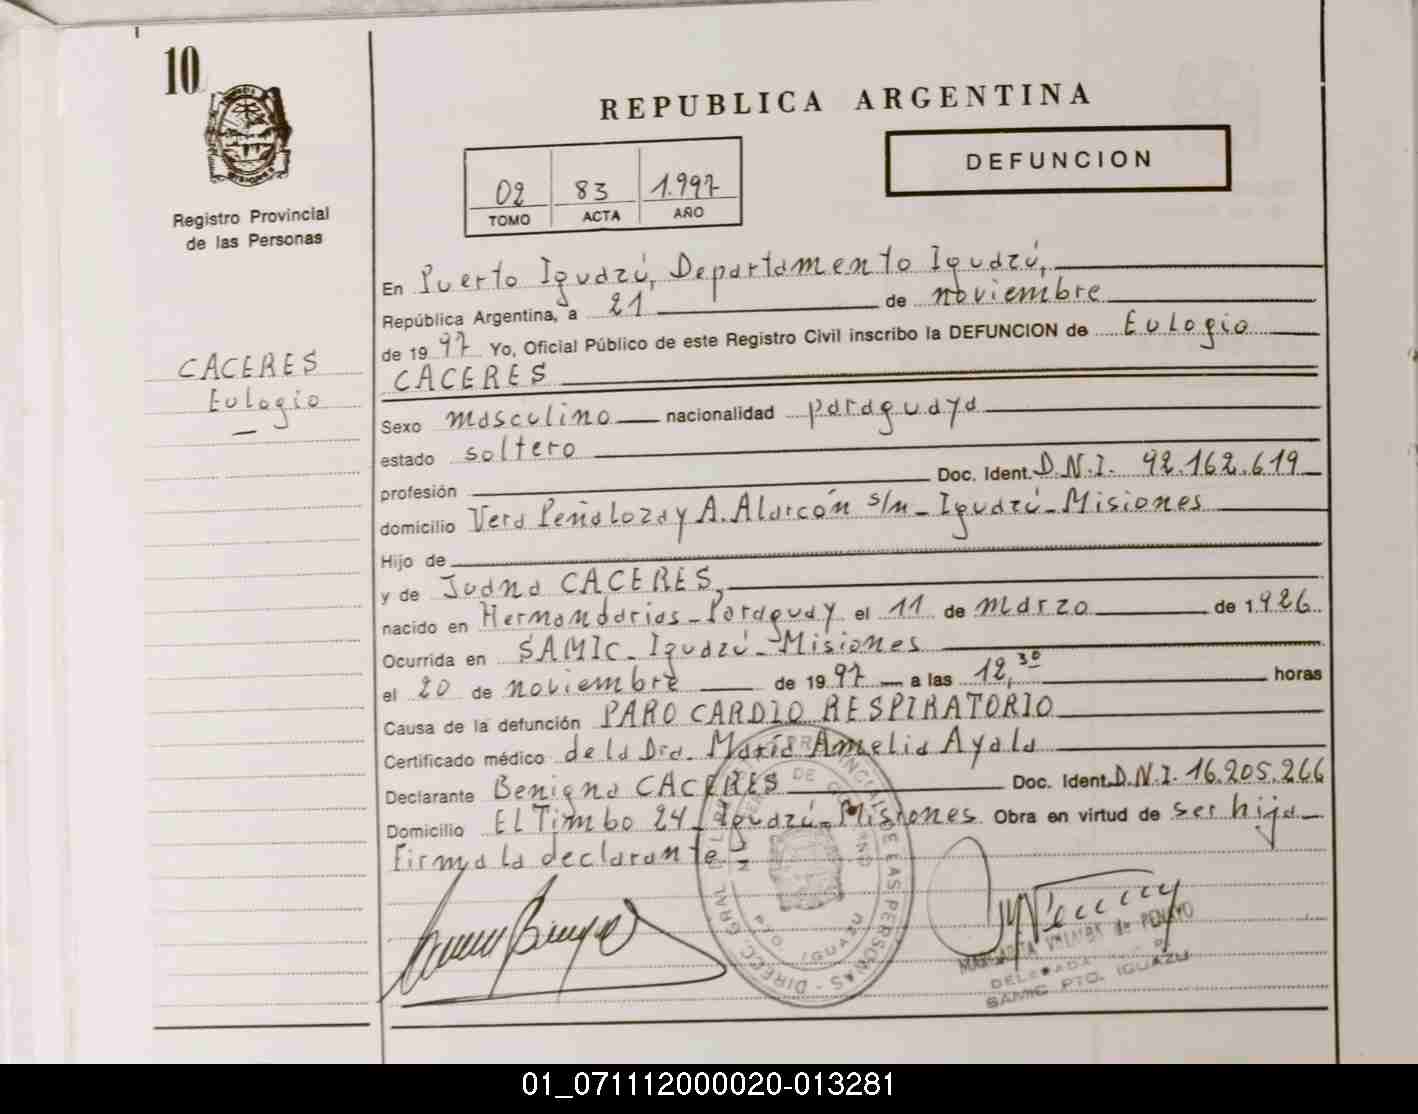 10
REPUBLICA ARGENTINA
DEFUNCION
02 83 1.997
TOMO ACTA AÑO
Registro Provincial
de las Personas
CACERES
Eulogio
En Puerto Iguazú, Departamento Iguazú,
República Argentina, a 21 de noviembre
de 1997 Yo, Oficial Público de este Registro Civil inscribo la DEFUNCION de Eulogio
CACERES
Sexo masculino nacionalidad paraguaya
estado soltero
profesión Doc. Ident. D.N.I. 92.162.619
domicilio Vera Peñaloza y A. Alarcón s/n - Iguazú - Misiones
Hijo de
y de Juana CACERES,
nacido en Hernandarias - Paraguay el 11 de marzo de 1.926
Ocurrida en SAMIC - Iguazú - Misiones
el 20 de noviembre de 1997 a las 12,30 horas
Causa de la defunción PARO CARDIO RESPIRATORIO
Certificado médico de la Dra. María Amelia Ayala
Declarante Benigna CACERES Doc. Ident. D.N.I. 16.205.266
Domicilio El Timbo 24 - Iguazú - Misiones Obra en virtud de ser hija
Firma la declarante
PROVINCIAL DE LAS PERSONAS - DIREC. GRAL DEL
DE
PTO. IGUAZU
MARGARITA de PENAYO
DELEGADA
SAMIC PTO. IGUAZU
01_071112000020-013281